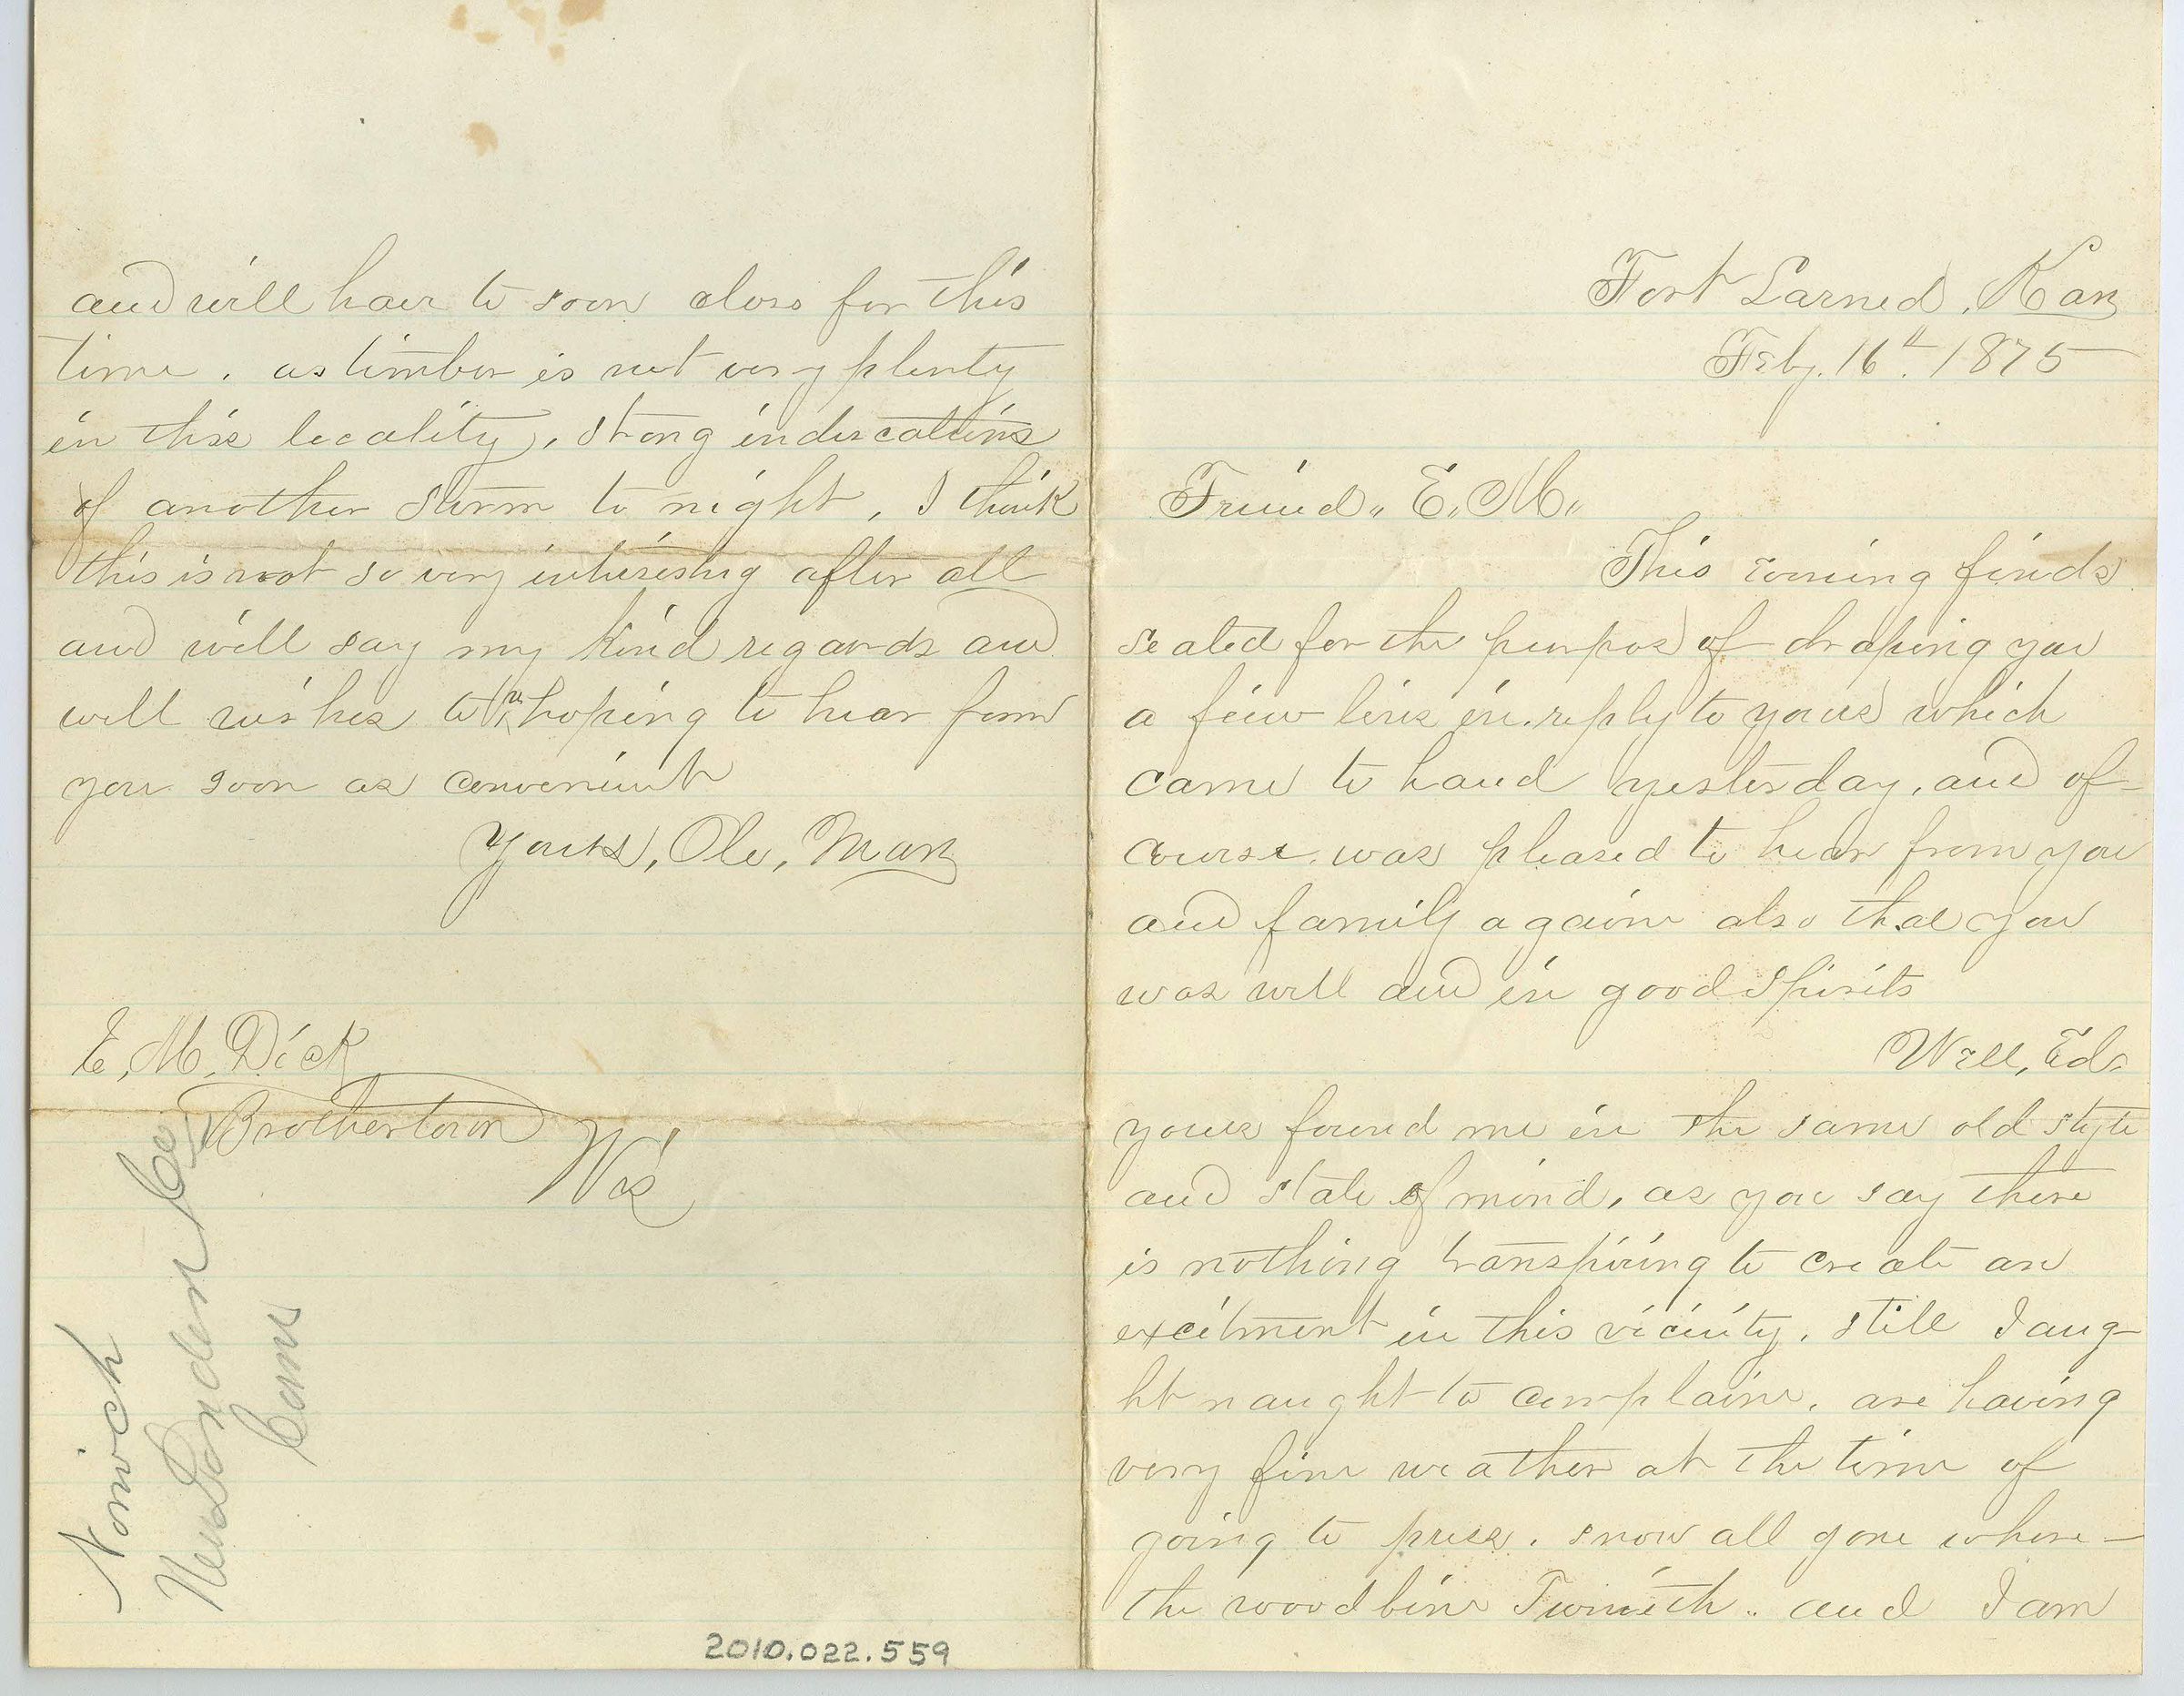 Fort Larned, Kan
Feby. 16th. 1875
Friend,, E,, M,,
This evening finds
seated for the purpos of droping you
a feiw lines in reply to yours which
came to hand yesterday, and of-
course was pleased to hear from you
and family againe also that you
was well and in good Spirits
Well, Ed.
yours found me in the same old style
and state of mind, as you say there
is nothing transpiring to create an
excitment in this vicinity, still I aug-
ht naught to complaine, are having
very fine weather at the time of
going to press. snow all gone where-
the woodbine Twineth.. and I am
and will have to soon close for this
time. as timber is not very plenty
in this locality, strong indications
of another storm to night, I think
this is not so very interesting after all
and will say my kind regards and
well wishes to hoping to hear from
you soon as convenient
Yours, Ole, Man
E, M, Dick
Brothertown
Wis
Norwich
New London Co
Conn
2010.022.559